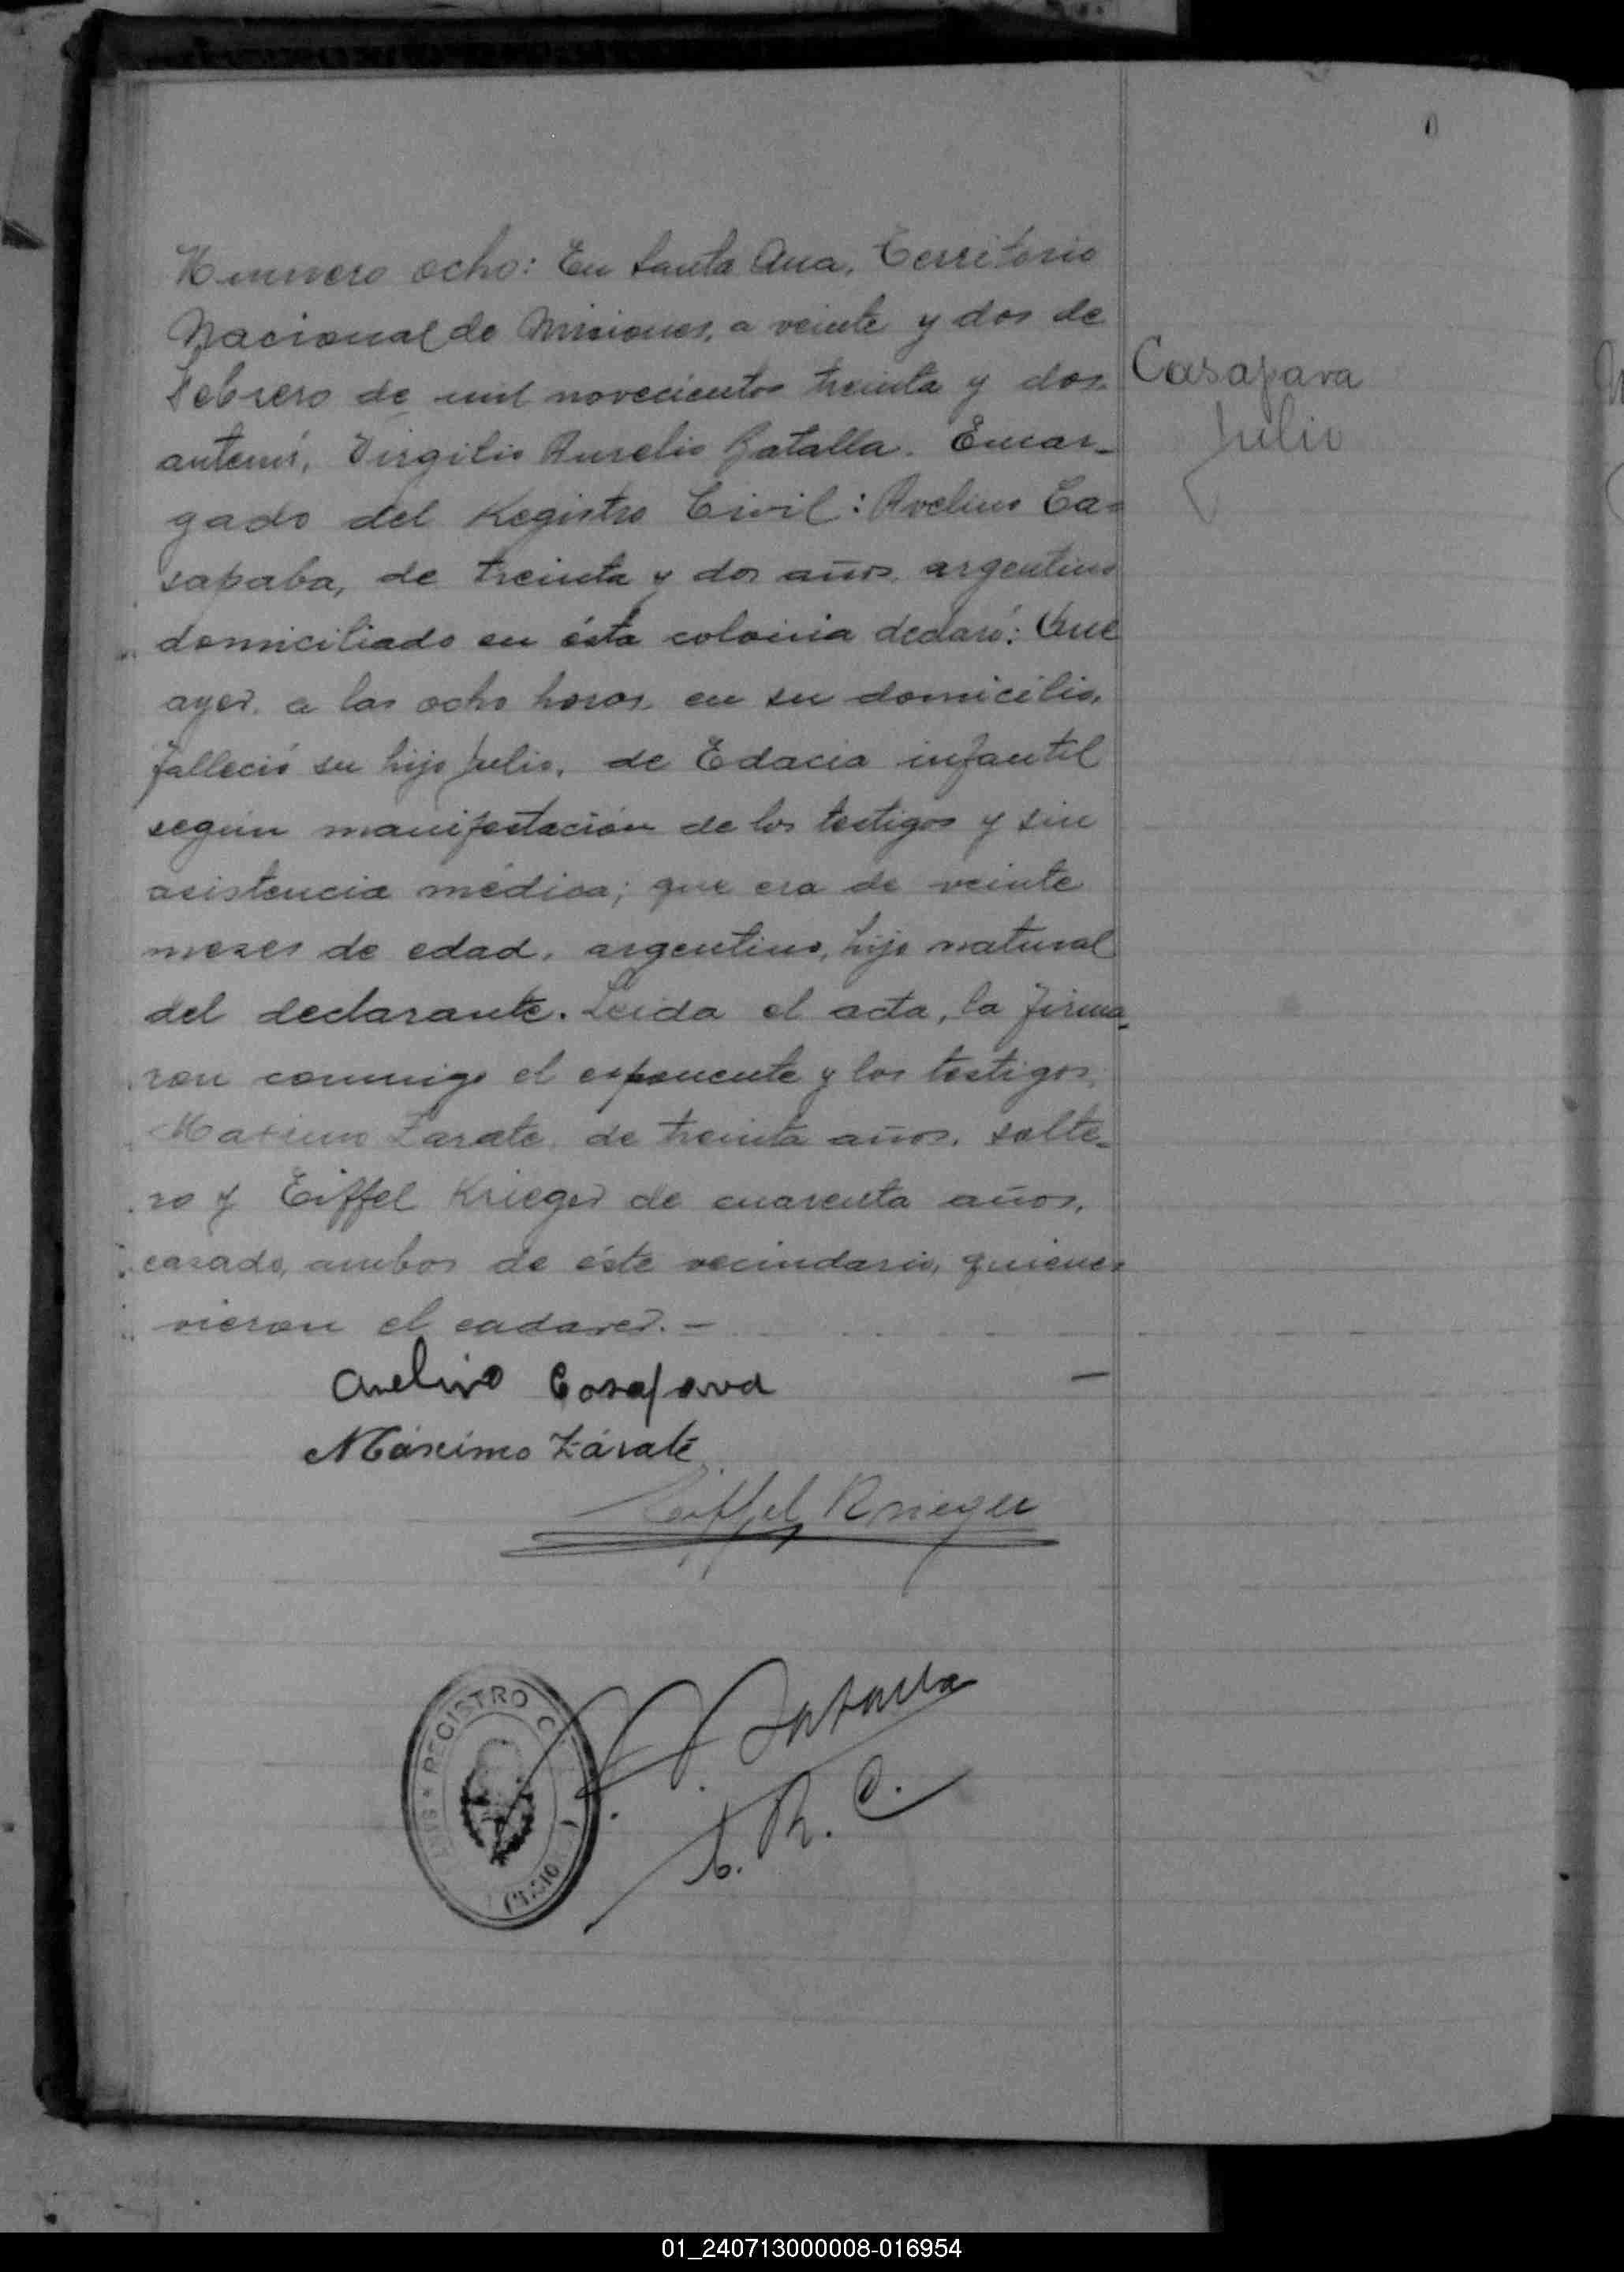 Número ocho: En Santa Ana, Territorio
Nacional de Misiones, a veinte y dos de
Febrero de mil novecientos treinta y dos
Casapava
Julio
antemí, Virgilio Aurelio Batalla. Encar-
gado del Registro Civil: Avelino Ca=
sapaba, de treinta y dos años, argentino
domiciliado en ésta colonia declaró: Que
ayer, a las ocho horas, en su domicilio,
falleció su hijo Julio, de Edacia infantil
según manifestación de los testigos y sin
asistencia médica; que era de veinte
meses de edad, argentino, hijo natural
del declarante. Leida el acta, la firma-
ron conmigo el exponente y los testigos,
Maximo Zarate, de treinta años, solte-
ro y Eiffel Krieger de cuarenta años,
casado, ambos de éste vecindario, quienes
vieron el cadaver. —
Avelino Casapava
Máximo Zárate
Eiffel Krieger
Batalla
E. R. C.
REGISTRO C
01_240713000008-016954